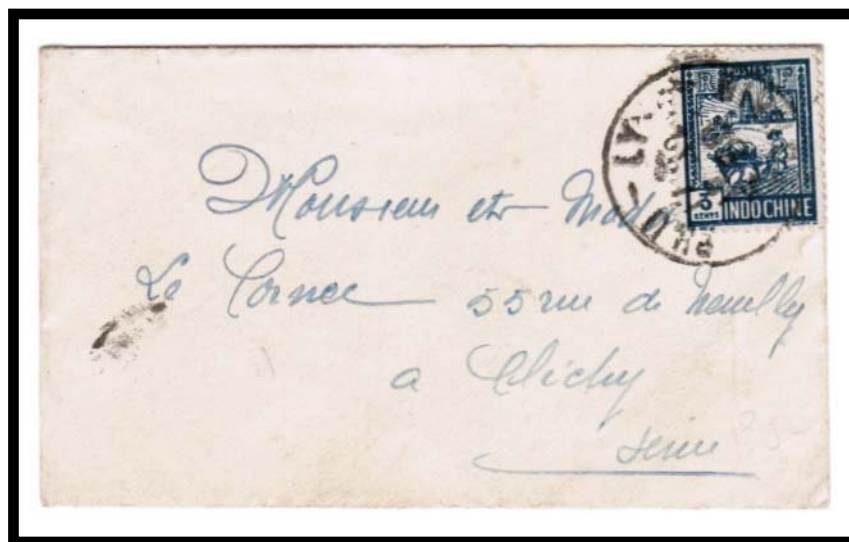 R POSTES F
3
CENTS
INDOCHINE
PHU-LY
Monsieur et Mad
Le Cornec 55 rue de Neuilly
a Clichy
Seine